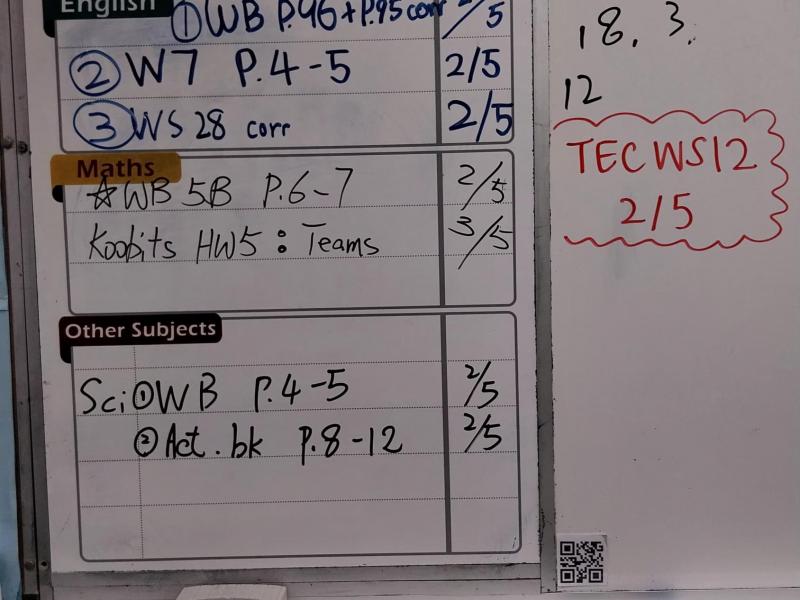 English
① WB P.46 + P.45 corr 2/5
② W7 P.4-5 2/5
③ WS 28 corr 2/5
Maths
☆ WB 5B P.6-7 2/5
Koobits HW5 : Teams 3/5
Other Subjects
Sci ① WB P.4-5 2/5
② Act. bk P.8-12 2/5
18. 3.
12
TEC WS12
2/5